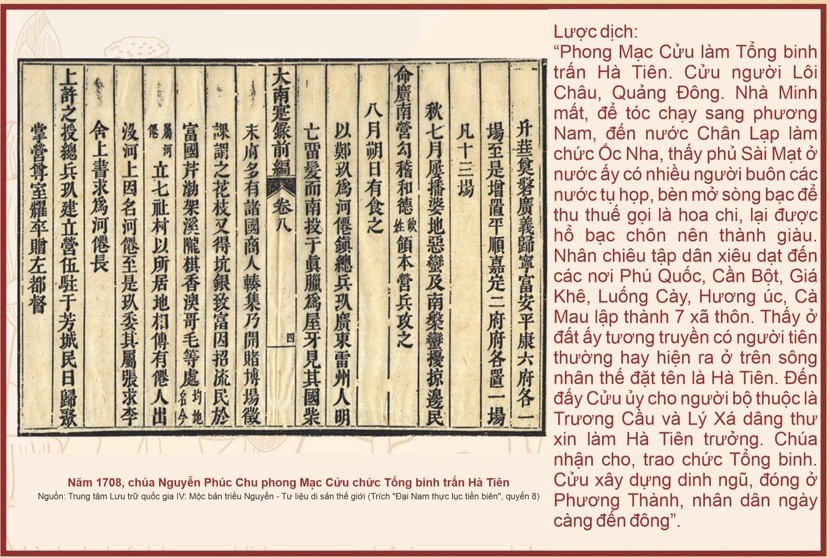 升華奠磐廣義歸寧富安平康六府各一
場至是增置平順嘉定二府府各置一場
凡十三場
秋七月屢播婆地惡蠻及南榮蠻擾掠邊民
命廣南營勾稽和德缺姓領本營兵攻之
八月朔日有食之
以鄚玖爲河僊鎮總兵玖廣東雷州人明
亡畱髮而南投于眞臘爲屋牙見其國柴
大南寔錄前編 卷八 四
末府多有諸國商人輳集乃開賭博場徵
課謂之花枝又得坑銀致富因招流民於
富國芹渤架溪隴棋香澳哥毛等處均地名今
屬河僊立七社村以所居地相傳有僊人出
沒河上因名河僊至是玖委其屬張求李
舍上書求爲河僊長
上許之授總兵玖建立營伍駐于芳城民日歸聚
掌營尊室耀卒贈左都督
Năm 1708, chúa Nguyễn Phúc Chu phong Mạc Cửu chức Tổng binh trấn Hà Tiên
Nguồn: Trung tâm Lưu trữ quốc gia IV: Mộc bản triều Nguyễn - Tư liệu di sản thế giới (Trích "Đại Nam thực lục tiền biên", quyển 8)
Lược dịch:
“Phong Mạc Cửu làm Tổng binh
trấn Hà Tiên. Cửu người Lôi
Châu, Quảng Đông. Nhà Minh
mất, để tóc chạy sang phương
Nam, đến nước Chân Lạp làm
chức Ốc Nha, thấy phủ Sài Mạt ở
nước ấy có nhiều người buôn các
nước tụ họp, bèn mở sòng bạc để
thu thuế gọi là hoa chi, lại được
hố bạc chôn nên thành giàu.
Nhân chiêu tập dân xiêu dạt đến
các nơi Phú Quốc, Cần Bột, Giá
Khê, Luống Cày, Hương úc, Cà
Mau lập thành 7 xã thôn. Thấy ở
đất ấy tương truyền có người tiên
thường hay hiện ra ở trên sông
nhân thế đặt tên là Hà Tiên. Đến
đấy Cửu ủy cho người bộ thuộc là
Trương Cầu và Lý Xá dâng thư
xin làm Hà Tiên trưởng. Chúa
nhận cho, trao chức Tổng binh.
Cửu xây dựng dinh ngũ, đóng ở
Phương Thành, nhân dân ngày
càng đến đông”.